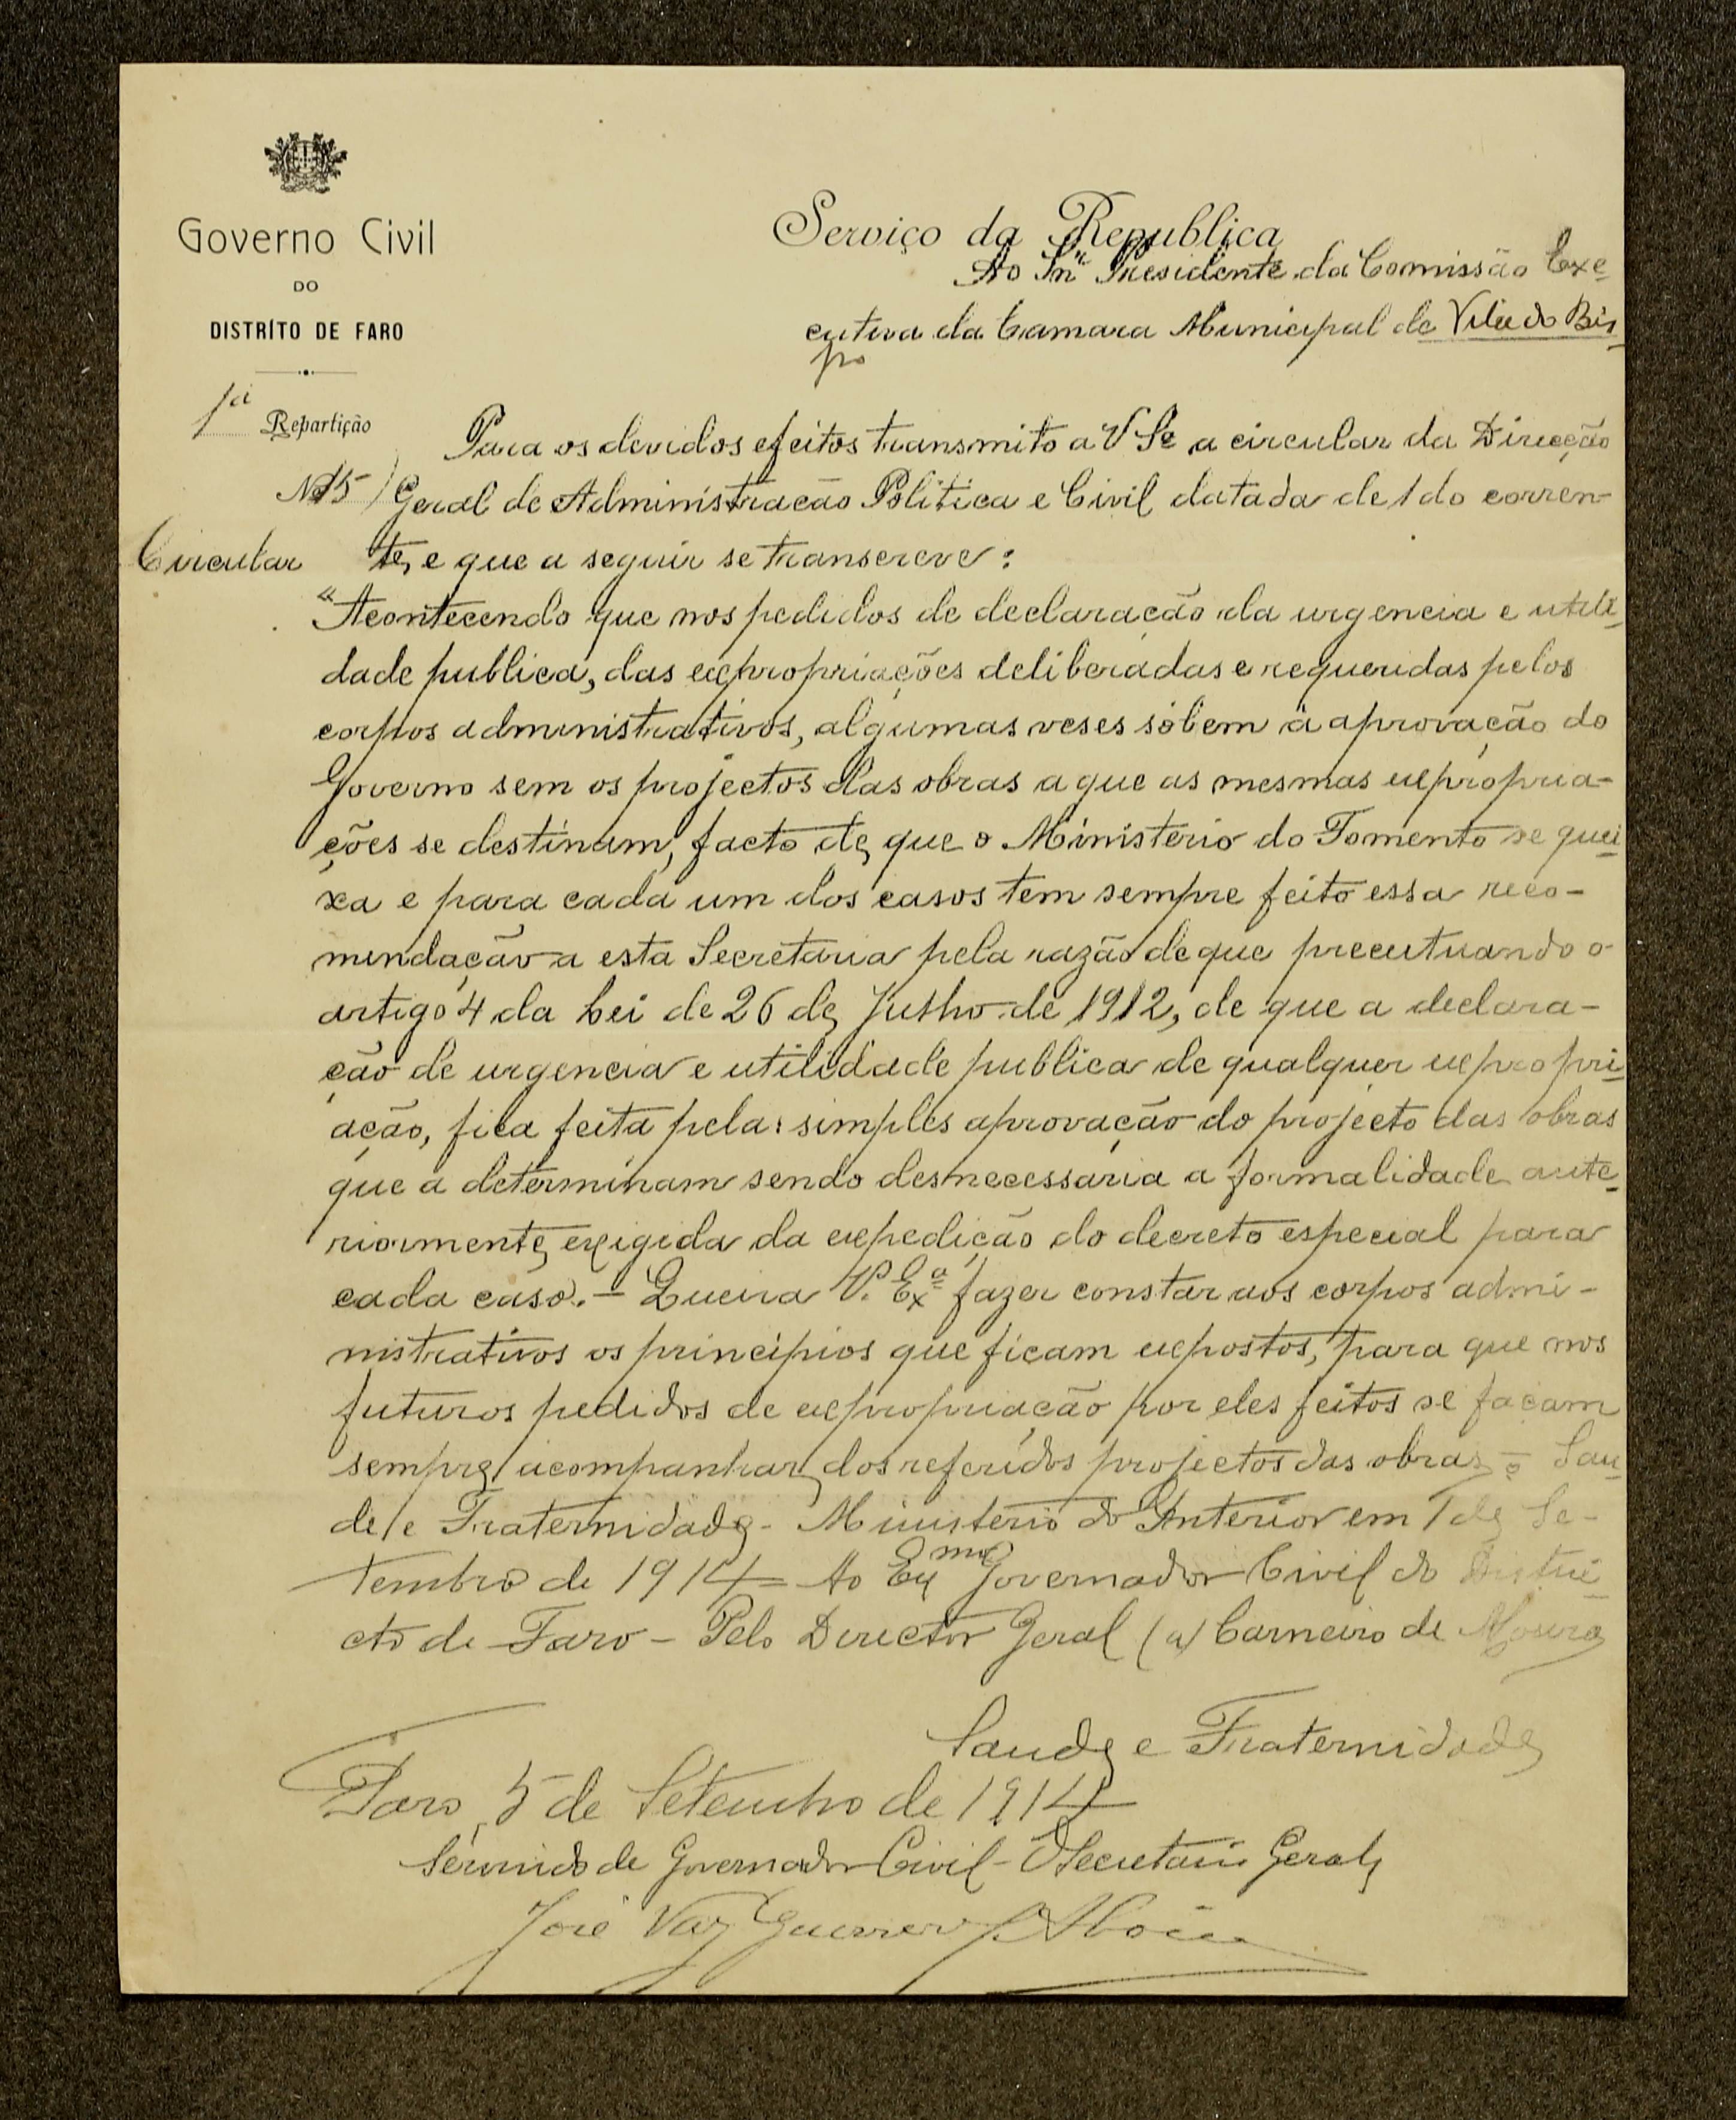 Governo Civil
DO
DISTRÍTO DE FARO
Serviço da Republica
Ao Snr Presidente da Comissão Exe-
cutiva da Camara Municipal de Vila do Bis-
po
1ª Repartição
Nº 15
Circular
Para os devidos efeitos transmito a V Sª a circular da Direcção
Geral de Administracão Politica e Civil datada de 1 do corren-
te, e que a seguir se transcreve:
"Acontecendo que nos pedidos de declaração da urgencia e utili-
dade publica, das expropriações deliberadas e requeridas pelos
corpos administrativos, algumas veses sóbem á aprovação do
Governo sem os projectos das obras a que as mesmas expropria-
ções se destinam, facto de que o Ministerio do Fomento se quei-
xa e para cada um dos casos tem sempre feito essa reco-
mendação a esta Secretaria pela razão de que preceituando o
artigo 4 da Lei de 26 de Julho de 1912, de que a declara-
ção de urgencia e utilidade publica de qualquer expropri-
ação, fica feita pela simples aprovação do projecto das obras
que a determinam sendo desnecessaria a formalidade ante-
riormente exigida da expedição do decreto especial para
cada caso. - Queira V. Exª fazer constar aos corpos admi-
nistrativos os principios que ficam expostos, para que nos
futuros pedidos de expropriação por eles feitos se façam
sempre acompanhar dos referidos projectos das obras = Sau-
de e Fraternidade - Ministerio do Interior em 1 de Se-
tembro de 1914 = Ao Exmo Governador Civil do Distri-
cto de Faro - Pelo Director Geral (a) Carneiro de Moura
Saude e Fraternidade
Faro, 5 de Setembro de 1914
Servindo de Governador Civil - O Secretario Geral,
José Vaz Guerreiro